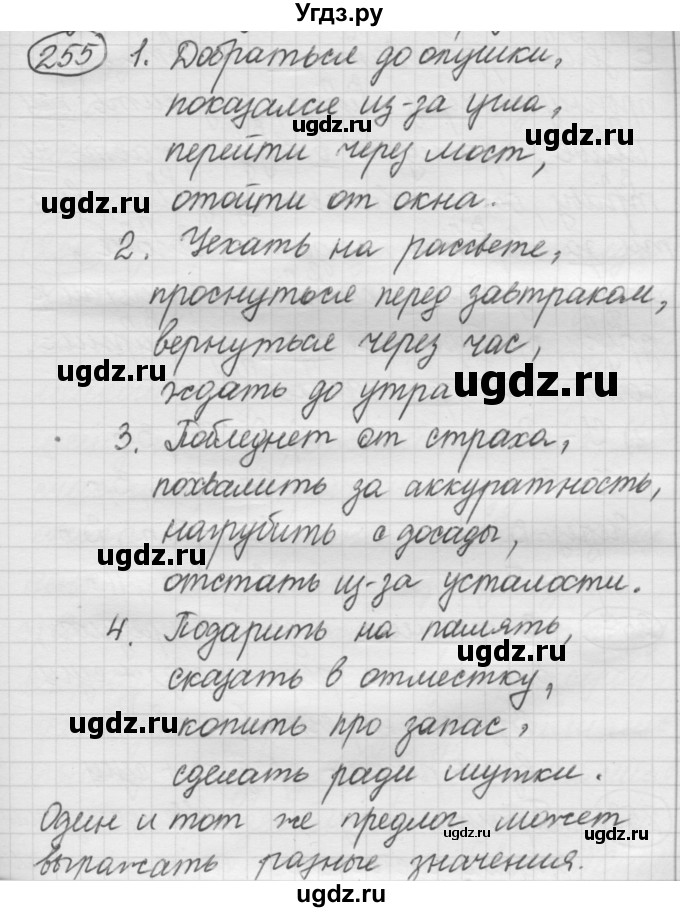 Угдз.ру
255 1. Добраться до опушки,
показался из-за угла,
ugdz.ru
перейти через мост,
ugdz.ru ugdz.ru
отойти от окна.
2. Уехать на рассвете,
проснуться перед завтраком,
вернуться через час,
ugdz.ru ugdz.ru
ждать до утра
3. Побледнет от страха,
похвалить за аккуратность,
нагрубить с досады,
ugdz.ru
отстать из-за усталости.
4. Подарить на память,
ugdz.ru
сказать в отместку,
ugdz.ru копить про запас,
сделать ради шутки.
Один и тот же предлог может
ugdz.ru ugdz.ru
выражать разные значения.
ugdz.ru